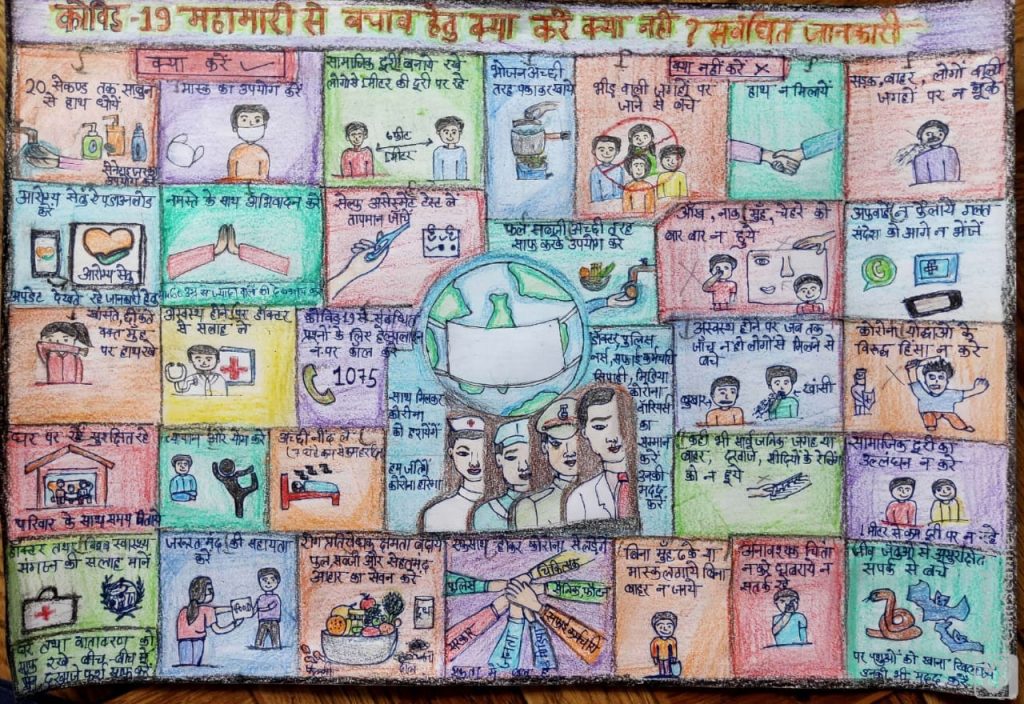 कोविड-19 महामारी से बचाव हेतु क्या करें क्या नहीं ? संबंधित जानकारी
क्या करें
20 सेकण्ड तक साबुन
से हाथ धोयें
उपयोग करें
मास्क का उपयोग करें
सामाजिक दूरी बनाये रखें
लोगों से 1 मीटर की दूरी पर रहें
6 फीट
1 मीटर
भोजन अच्छी
तरह पकाकर खाये
क्या नहीं करें
भीड़ वाली जगहों पर
जाने से बचें
हाथ न मिलायें
सड़क, बाहर, लोगों वाली
जगहों पर न थूकें
आरोग्य सेतु ऐप डाउनलोड
करें
आरोग्य सेतु
अपडेट देखते रहे जानकारी हेतु
नमस्ते के साथ अभिवादन करें
सेल्फ असेस्मेंट टेस्ट ले
तापमान जाँचें
फल सब्जी अच्छी तरह
साफ करके उपयोग करें
आँख, नाक, मुँह, चेहरे को
बार बार न छुयें
अफवाह न फैलायें गलत
संदेश को आगे न भेजें
खांसते, छींकते
वक्त मुँह
पर हाथ रखें
अस्वस्थ होने पर डॉक्टर
से सलाह लें
कोविड-19 से संबंधित
प्रश्नों के लिए हेल्पलाइन
नं. पर काल करें
1075
साथ मिलकर
कोरोना
को हरायेंगे
हम जीतेंगे
कोरोना हारेगा
डॉक्टर, पुलिस,
नर्स, सफाई कर्मचारी
सिपाही, मिडिया
कोरोना
वॉरियर्स
का
सम्मान
करें
उनकी
मदद
करें
अस्वस्थ होने पर जब तक
जाँच न हो लोगों से मिलने से
बचें
बुखार
खाँसी
कोरोना योद्धाओं के
विरुद्ध हिंसा न करें
घर पर रहें सुरक्षित रहें
परिवार के साथ समय बितायें
व्यायाम और योग करें
अच्छी नींद लें
किसी भी सार्वजनिक जगह या
बाहर, दरवाजे, सीढ़ियों के रेलिंग
को न छुये
सामाजिक दूरी का
उल्लंघन न करें
1 मीटर से कम दूरी पर न रहें
डॉक्टर तथा विश्व स्वास्थ्य
संगठन की सलाह माने
घर तथा वातावरण को
साफ रखें, बीच-बीच में
जरूरतमंद की सहायता
करें
रोग प्रतिरोधक क्षमता बढ़ाये
फल सब्जी और सेहतमंद
आहार का सेवन करें
एकसाथ होकर कोरोना से लड़ेंगे
पुलिस
चिकित्सक
सैनिक, फोर्स
सफाई कर्मचारी
सरकार
जनता
बिना मुँह ढके या
मास्क लगाये बिना
बाहर न जायें
अनावश्यक चिंता
न करें घबरायें न
सतर्क रहें
जीव जंतुओं से असुरक्षित
संपर्क से बचें
पर पशुओं को खाना खिलायें
उनकी भी मदद करें